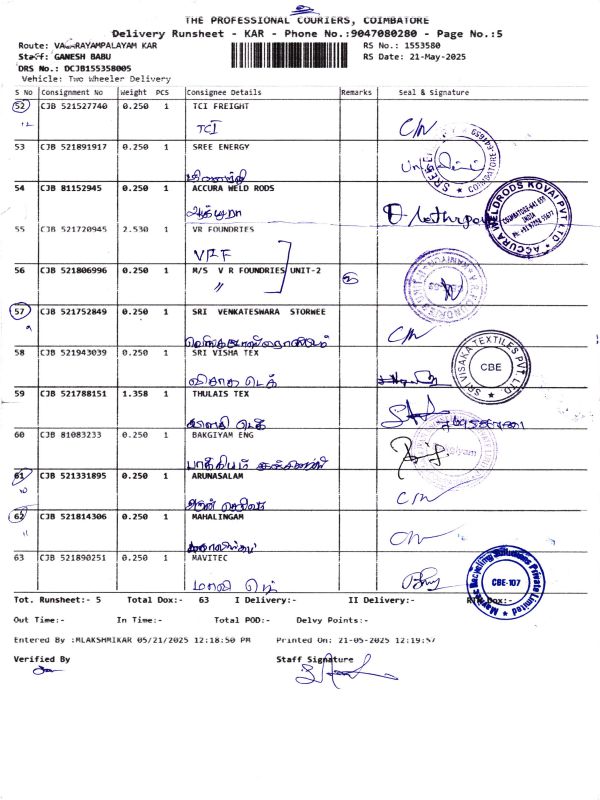 THE PROFESSIONAL COURIERS, COIMBATORE
Delivery Runsheet - KAR - Phone No.:9047080280 - Page No.:5
Route: VAGARAYAMPALAYAM KAR RS No.: 1553580
Staff: GANESH BABU RS Date: 21-May-2025
DRS No.: DCJB155358005
Vehicle: Two Wheeler Delivery
S No Consignment No Weight PCS Consignee Details Remarks Seal & Signature
52 CJB 521527740 0.250 1 TCI FREIGHT
TCI
53 CJB 521891917 0.250 1 SREE ENERGY
54 CJB 81152945 0.250 1 ACCURA WELD RODS
ACCURA WELDRODS KOVAI PVT LTD
55 CJB 521720945 2.530 1 VR FOUNDRIES
VRF
56 CJB 521806996 0.250 1 M/S V R FOUNDRIES UNIT-2
"
57 CJB 521752849 0.250 1 SRI VENKATESWARA STORWEE
58 CJB 521943039 0.250 1 SRI VISHA TEX
விசாகா டெக்
SRI VISAKA TEXTILES PVT LTD
CBE
59 CJB 521788151 1.358 1 THULAIS TEX
துளசி டெக்
60 CJB 81083233 0.250 1 BAKGIYAM ENG
61 CJB 521331895 0.250 1 ARUNASALAM
62 CJB 521814306 0.250 1 MAHALINGAM
63 CJB 521890251 0.250 1 MAVITEC
மாவி டெக்
Mavitec Recycling Solutions Private Limited
CBE-107
Tot. Runsheet:- 5 Total Dox:- 63 I Delivery:- II Delivery:- RTN Dox:-
Out Time:- In Time:- Total POD:- Delvy Points:-
Entered By :MLAKSHMIKAR 05/21/2025 12:18:50 PM Printed On: 21-05-2025 12:19:57
Verified By Staff Signature